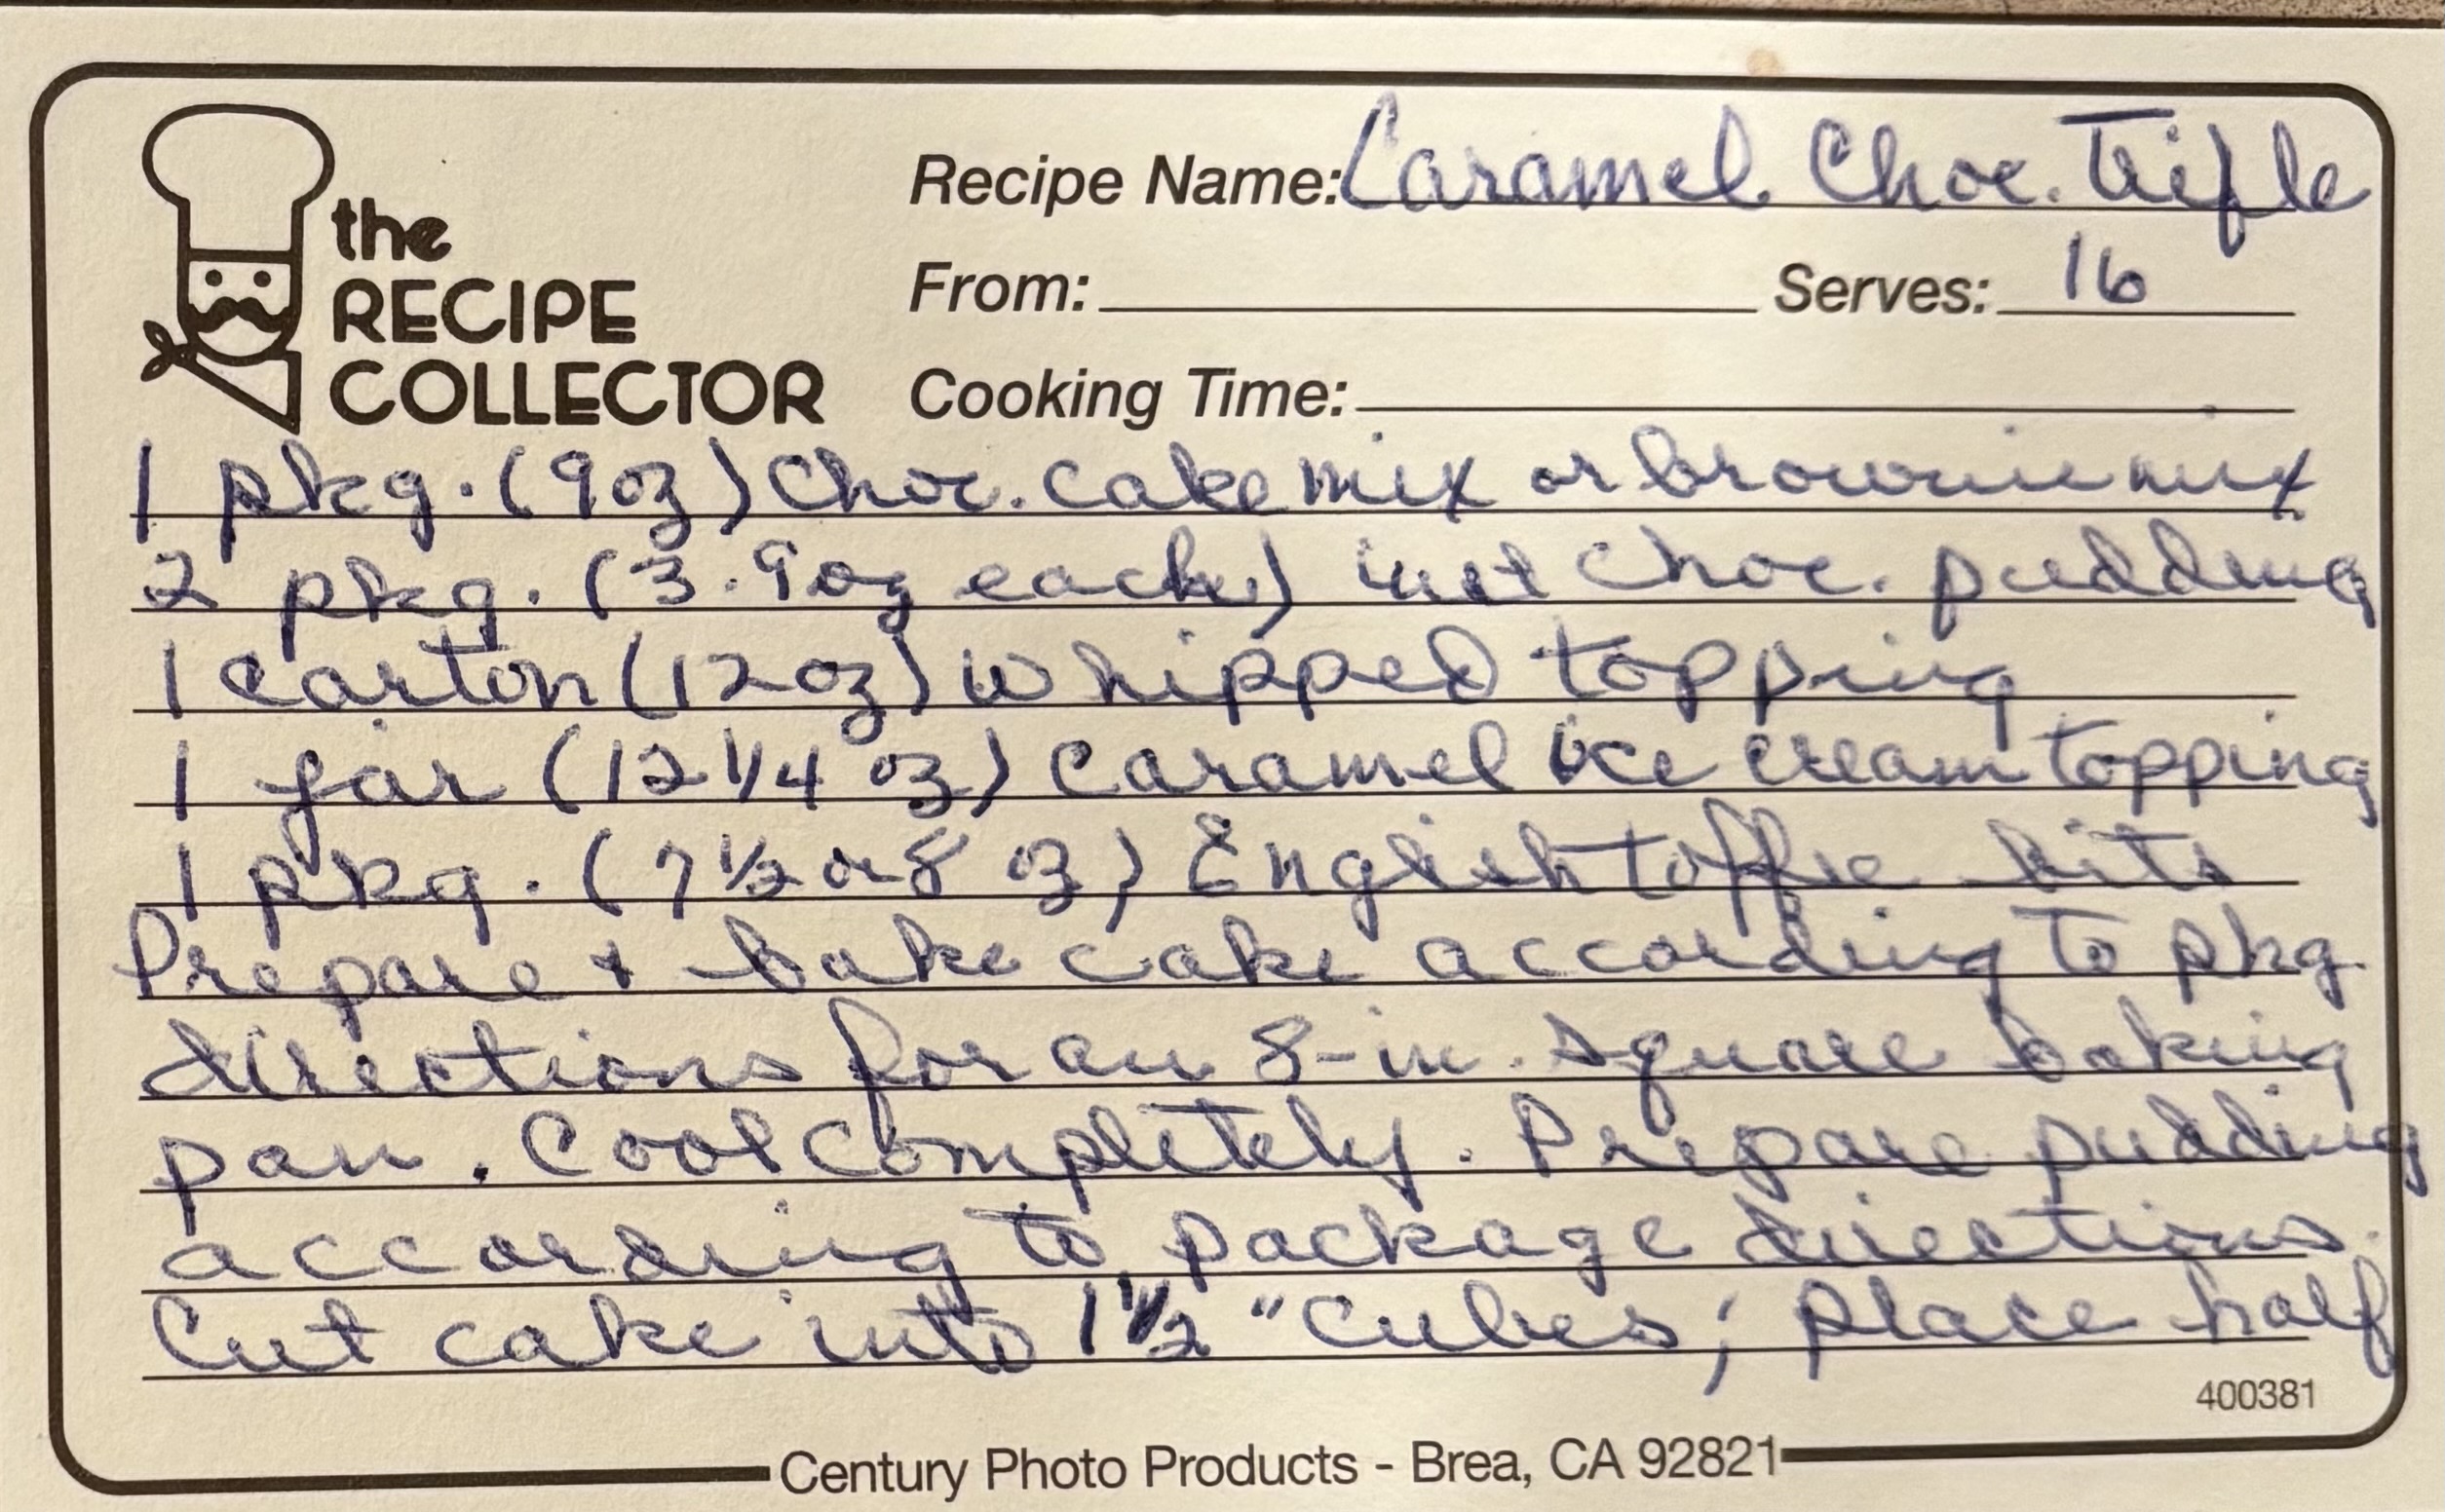 the
RECIPE
COLLECTOR
Recipe Name: Caramel Choc. Trifle
From:
Serves: 16
Cooking Time:
1 pkg. (9oz) Choc. cake mix or brownie mix
2 pkg. (3.9oz each) inst choc. pudding
1 carton (12oz) whipped topping
1 jar (12 1/4 oz) caramel ice cream topping
1 pkg. (7 1/2 or 8 oz) English toffee bits
Prepare + bake cake according to pkg.
directions for an 8-in. square baking
pan. Cool completely. Prepare pudding
according to package directions.
Cut cake into 1 1/2" cubes; place half
400381
Century Photo Products - Brea, CA 92821